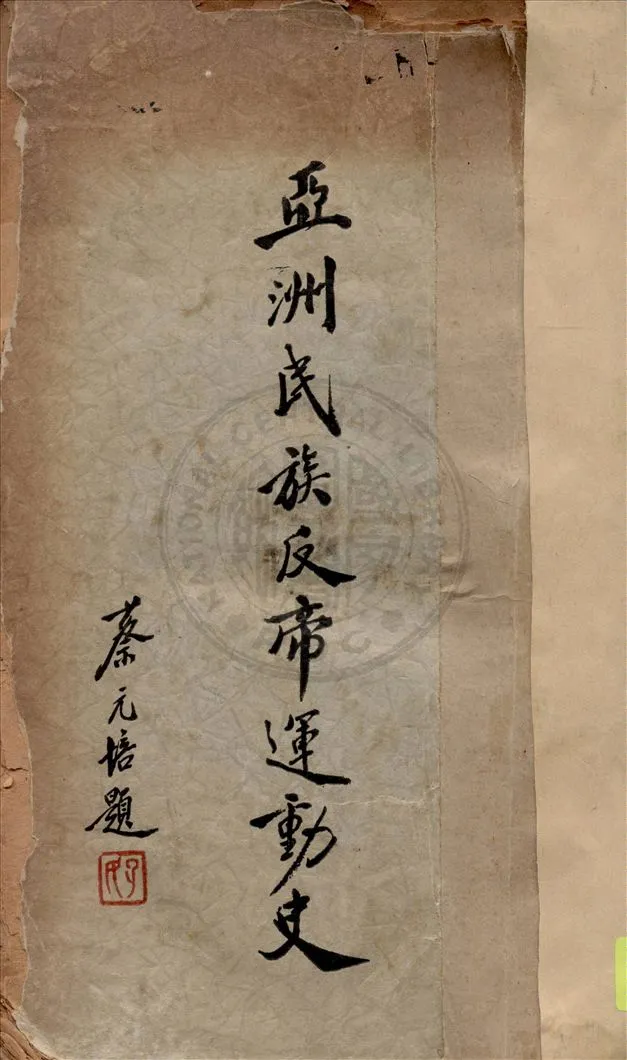 亞洲民族反帝運動史
蔡元培題